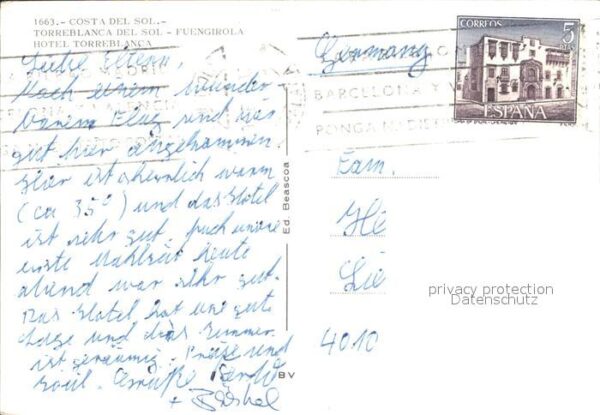 1663.- COSTA DEL SOL.-
TORREBLANCA DEL SOL - FUENGIROLA
HOTEL TORREBLANCA
Liebe Eltern,
Nach einem wunder-
barem Flug sind wir
gut hier angekommen.
Hier ist es herrlich warm
(ca 35°) und das Hotel
ist sehr gut. Auch unsere
erste Mahlzeit heute
abend war sehr gut.
Das Hotel hat eine gute
Lage und das Zimmer
ist geräumig. und
Grüße
+
Ed. Beascoa
BV
Germany
CORREOS 5 PTAS
ESPAÑA
BARCELONA Y
PONGA
Fam.
He
Lie
4010
privacy protection
Datenschutz